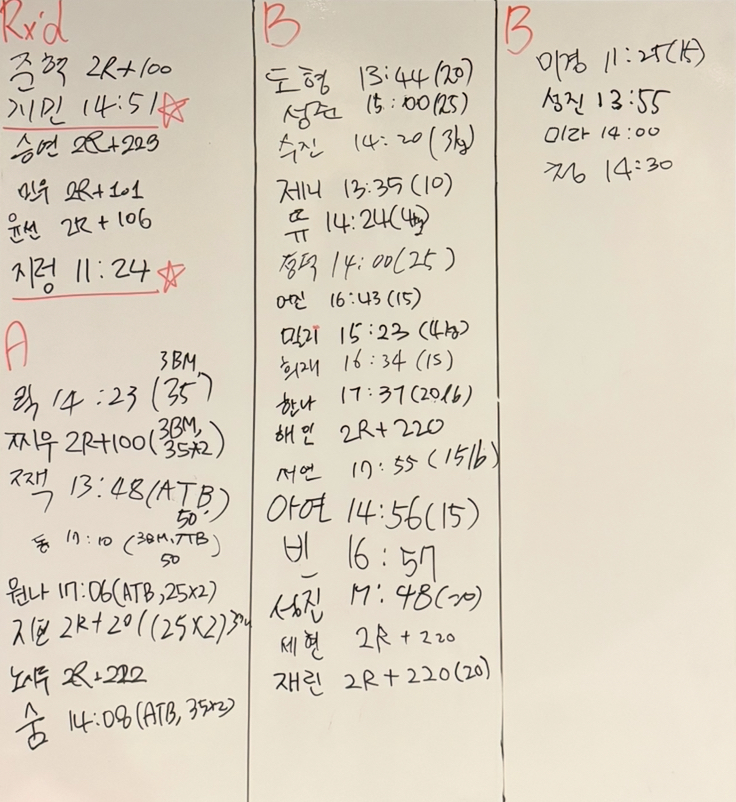 Rx'd
준혁 2R+100
지민 14:51 ☆
승연 2R+223
민우 2R+101
윤선 2R+106
지정 11:24 ☆
A
14:23 (3BM, 35)
찌우 2R+100 (3BM, 35*2)
13:48 (ATB, 50)
동 17:10 (3BM, ATB) 50
원나 17:06 (ATB, 25x2)
지현 2R+20 ((25x2)
2R+222
숨 14:08 (ATB, 35x2)
B
도형 13:44 (20)
15:00 (25)
수진 14:20 (3kg)
제니 13:35 (10)
뮤 14:24 (4kg)
14:00 (25)
16:43 (15)
밀리 15:23 (4kg)
희재 16:34 (15)
한나 17:37 (20lb)
해인 2R+220
서연 17:55 (15lb)
아연 14:56 (15)
빈 16:57
성진 17:48 (20)
세현 2R+220
재린 2R+220 (20)
B
미경 11:25 (15)
성진 13:55
미라 14:00
14:30